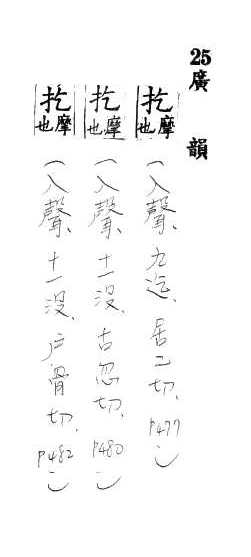 25廣韻
扢摩也(入聲、九迄、居乙切、P477)
扢摩也(入聲、十一没、古忽切、P480)
扢摩也(入聲、十一没、戶骨切、P482)